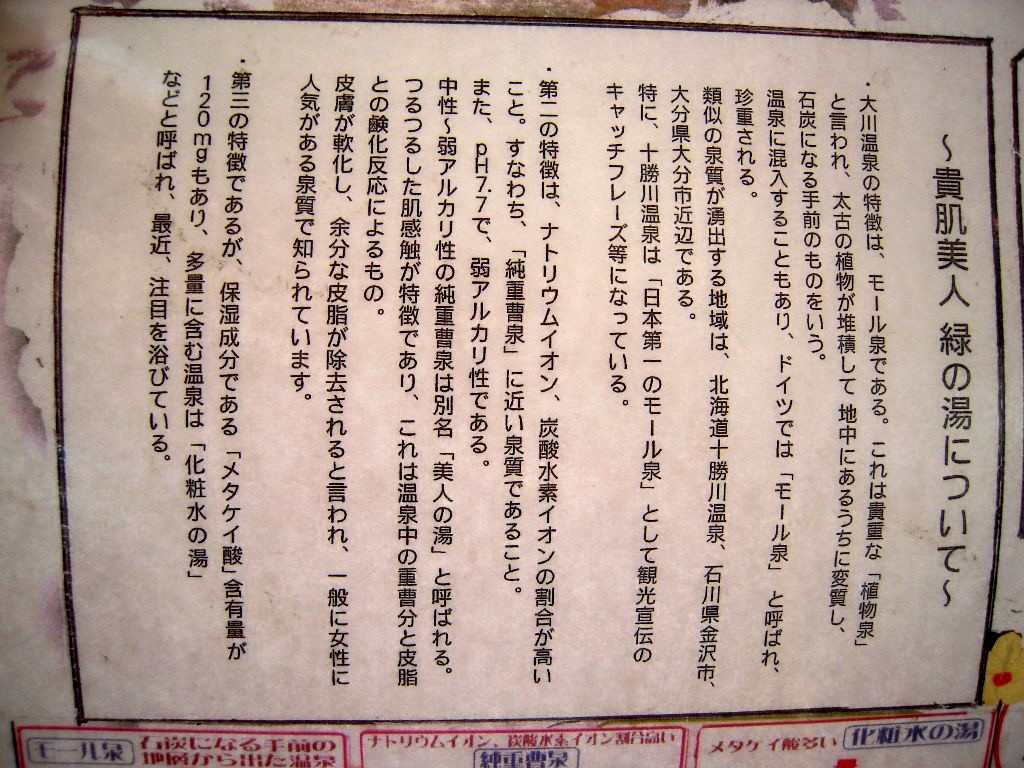 ～貴肌美人 緑の湯について～
・大川温泉の特徴は、モール泉である。これは貴重な「植物泉」
と言われ、太古の植物が堆積して 地中にあるうちに変質し、
石炭になる手前のものをいう。
温泉に混入することもあり、ドイツでは「モール泉」と呼ばれ、
珍重される。
類似の泉質が湧出する地域は、北海道十勝川温泉、石川県金沢市、
大分県大分市近辺である。
特に、十勝川温泉は「日本第一のモール泉」として観光宣伝の
キャッチフレーズ等になっている。
・第二の特徴は、ナトリウムイオン、炭酸水素イオンの割合が高い
こと。すなわち、「純重曹泉」に近い泉質であること。
また、pH7.7で、弱アルカリ性である。
中性～弱アルカリ性の純重曹泉は別名「美人の湯」と呼ばれる。
つるつるした肌感触が特徴であり、これは温泉中の重曹分と皮脂
との鹸化反応によるもの。
皮膚が軟化し、余分な皮脂が除去されると言われ、一般に女性に
人気がある泉質で知られています。
・第三の特徴であるが、保湿成分である「メタケイ酸」含有量が
120mgもあり、多量に含む温泉は「化粧水の湯」
などと呼ばれ、最近、注目を浴びている。
モール泉
石炭になる手前の
地層から出た温泉
ナトリウムイオン、炭酸水素イオン割合高い
純重曹泉
メタケイ酸多い
化粧水の湯